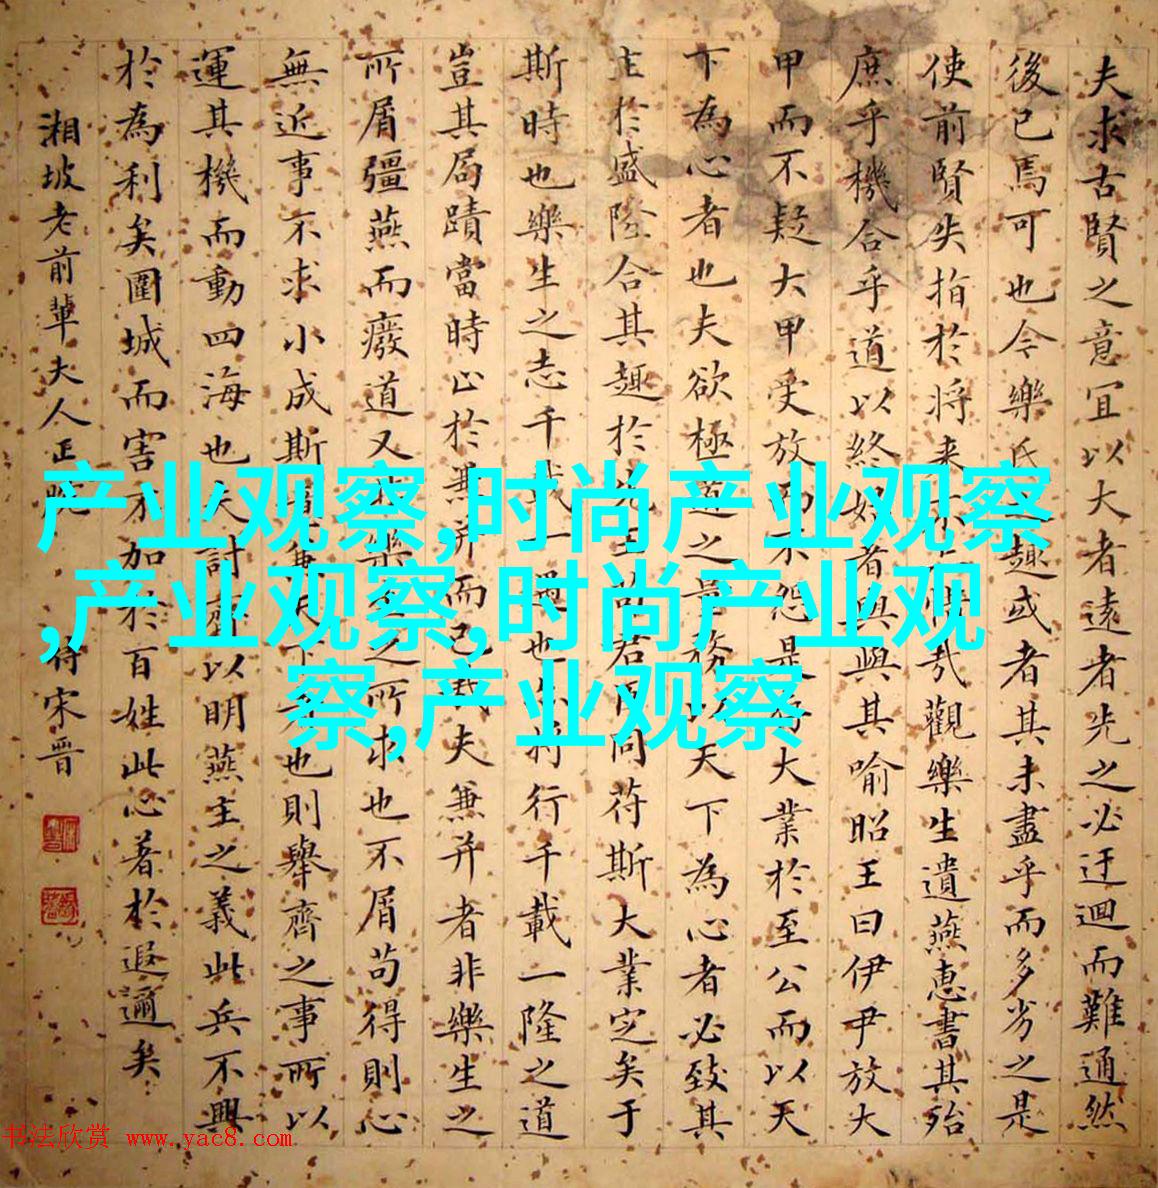 夫求古賢之意宜以大者遠者先之必迂迴而難通然
後已焉可也今樂氏趣或者其未盡乎而多劣之是
使前賢失指於将来惜哉觀樂生遺燕惠書其殆
庶乎機合乎道以終始者與與其喻昭王曰伊尹放大
甲而不疑大甲受放而不怨是大業於至公而以天
下為心者也夫欲極道之量務以天下為心者必致其
主於盛隆合其趣於先王苟君臣同符斯大業定矣于
斯時也樂生之志千載一遇也亦将行千載一隆之道
豈其局蹟當時止於兼并而已哉夫兼并者非樂生之
所屑彊燕而廢道又非樂生之所求也不屑苟得則心
無近事不求小成斯意兼天下者也則舉齊之事所以
運其機而動四海也夫討齊以明燕主之義此兵不興
於為利矣圍城而害不加於百姓此心著於遐邇矣
湘坡老前輩夫人正
侍宋晋
产业观察,时尚产业观察
,产业观察,时尚产业观
察,产业观察
书法欣赏 www.yac8.com